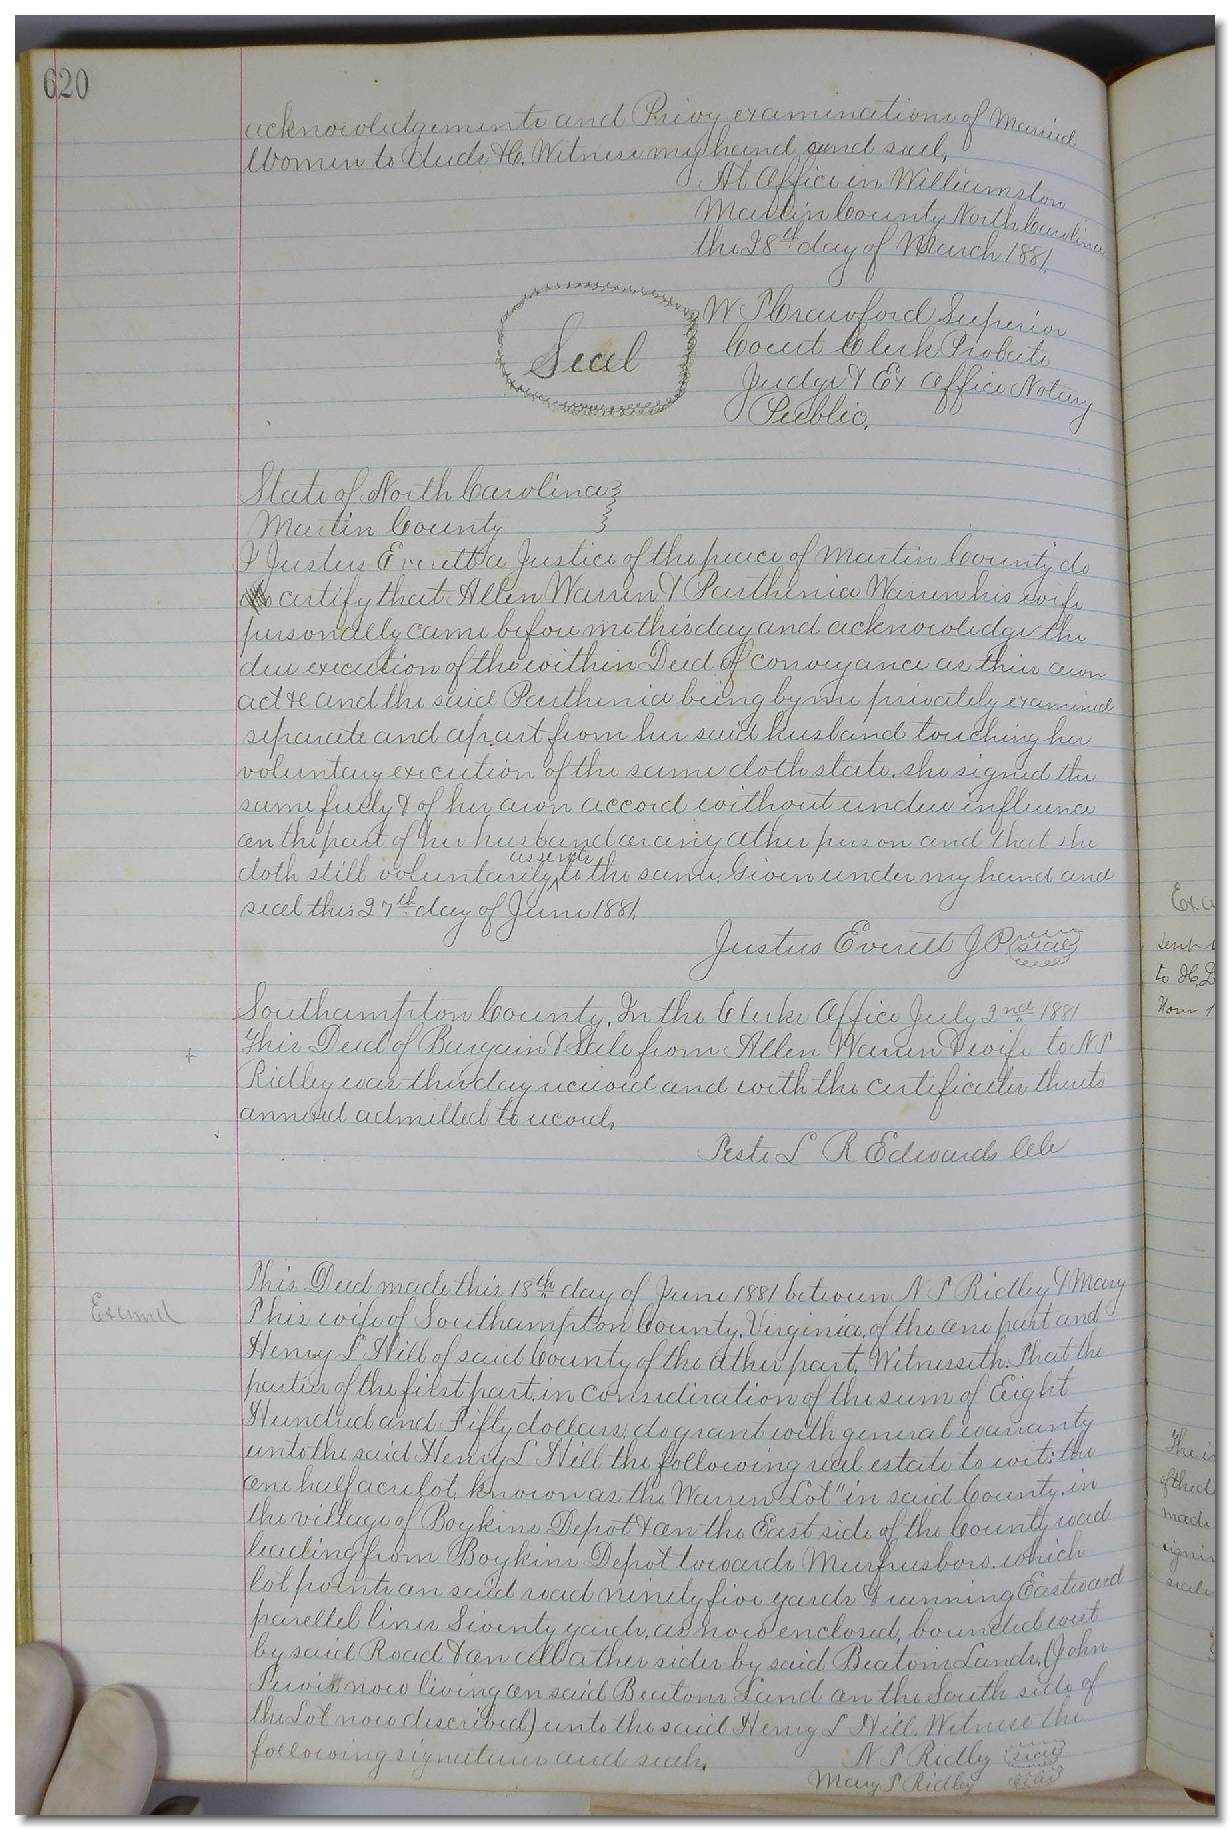 620
acknowledgements and Privy examinations of Married
Women to deeds &c. Witness my hand and seal,
At Office in Williamston
Martin County North Carolina
the 28th day of March 1881.
Seal
W P Crawford Superior
Court Clerk Probate
Judge & Ex Officio Notary
Public.
State of North Carolina
Martin County
I Justus Everett a Justice of the peace of Martin County do
certify that Allen Warren & Parthenia Warren his wife
personally came before me this day and acknowledge the
due execution of the within Deed of conveyance as their own
act &c and the said Parthenia being by me privately examined
separate and apart from her said husband touching her
voluntary execution of the same doth state she signed the
same freely & of her own accord without undue influence
on the part of her husband or any other person and that she
assent
doth still voluntarily ^ to the same. Given under my hand and
seal this 27th day of June 1881.
Justus Everett J P seal
Southampton County, In the Clerks Office July 2nd 1881
+ This Deed of Bargain & Sale from Allen Warren & wife to N P
Ridley was this day received and with the certificates thereto
annexed admitted to record,
Teste L R Edwards Clk
This Deed made this 18th day of June 1881 between N P Ridley & Mary
Examd
P his wife of Southampton County, Virginia, of the one part and
Henry L Hill of said County of the other part, Witnesseth: That the
parties of the first part, in consideration of the sum of Eight
Hundred and Fifty dollars, do grant with general warranty
unto the said Henry L Hill the following real estate to wit: the
one half acre lot, known as the Warren Lot" in said County, in
the village of Boykins Depot & on the East side of the County road
leading from Boykins Depot towards Murfreesboro. which
lot points on said road ninety five yards & running Eastward
parellel lines Seventy yards, as now enclosed, bounded west
by said Road & on all other sides by said Beatons Lands, (John
now living on said Beatons Land on the South side of
the Lot now described) unto the said Henry L Hill. Witness the
following signatures and seals.
N P Ridley seal
Mary P Ridley seal
to H,L
Hour
The
of the
made